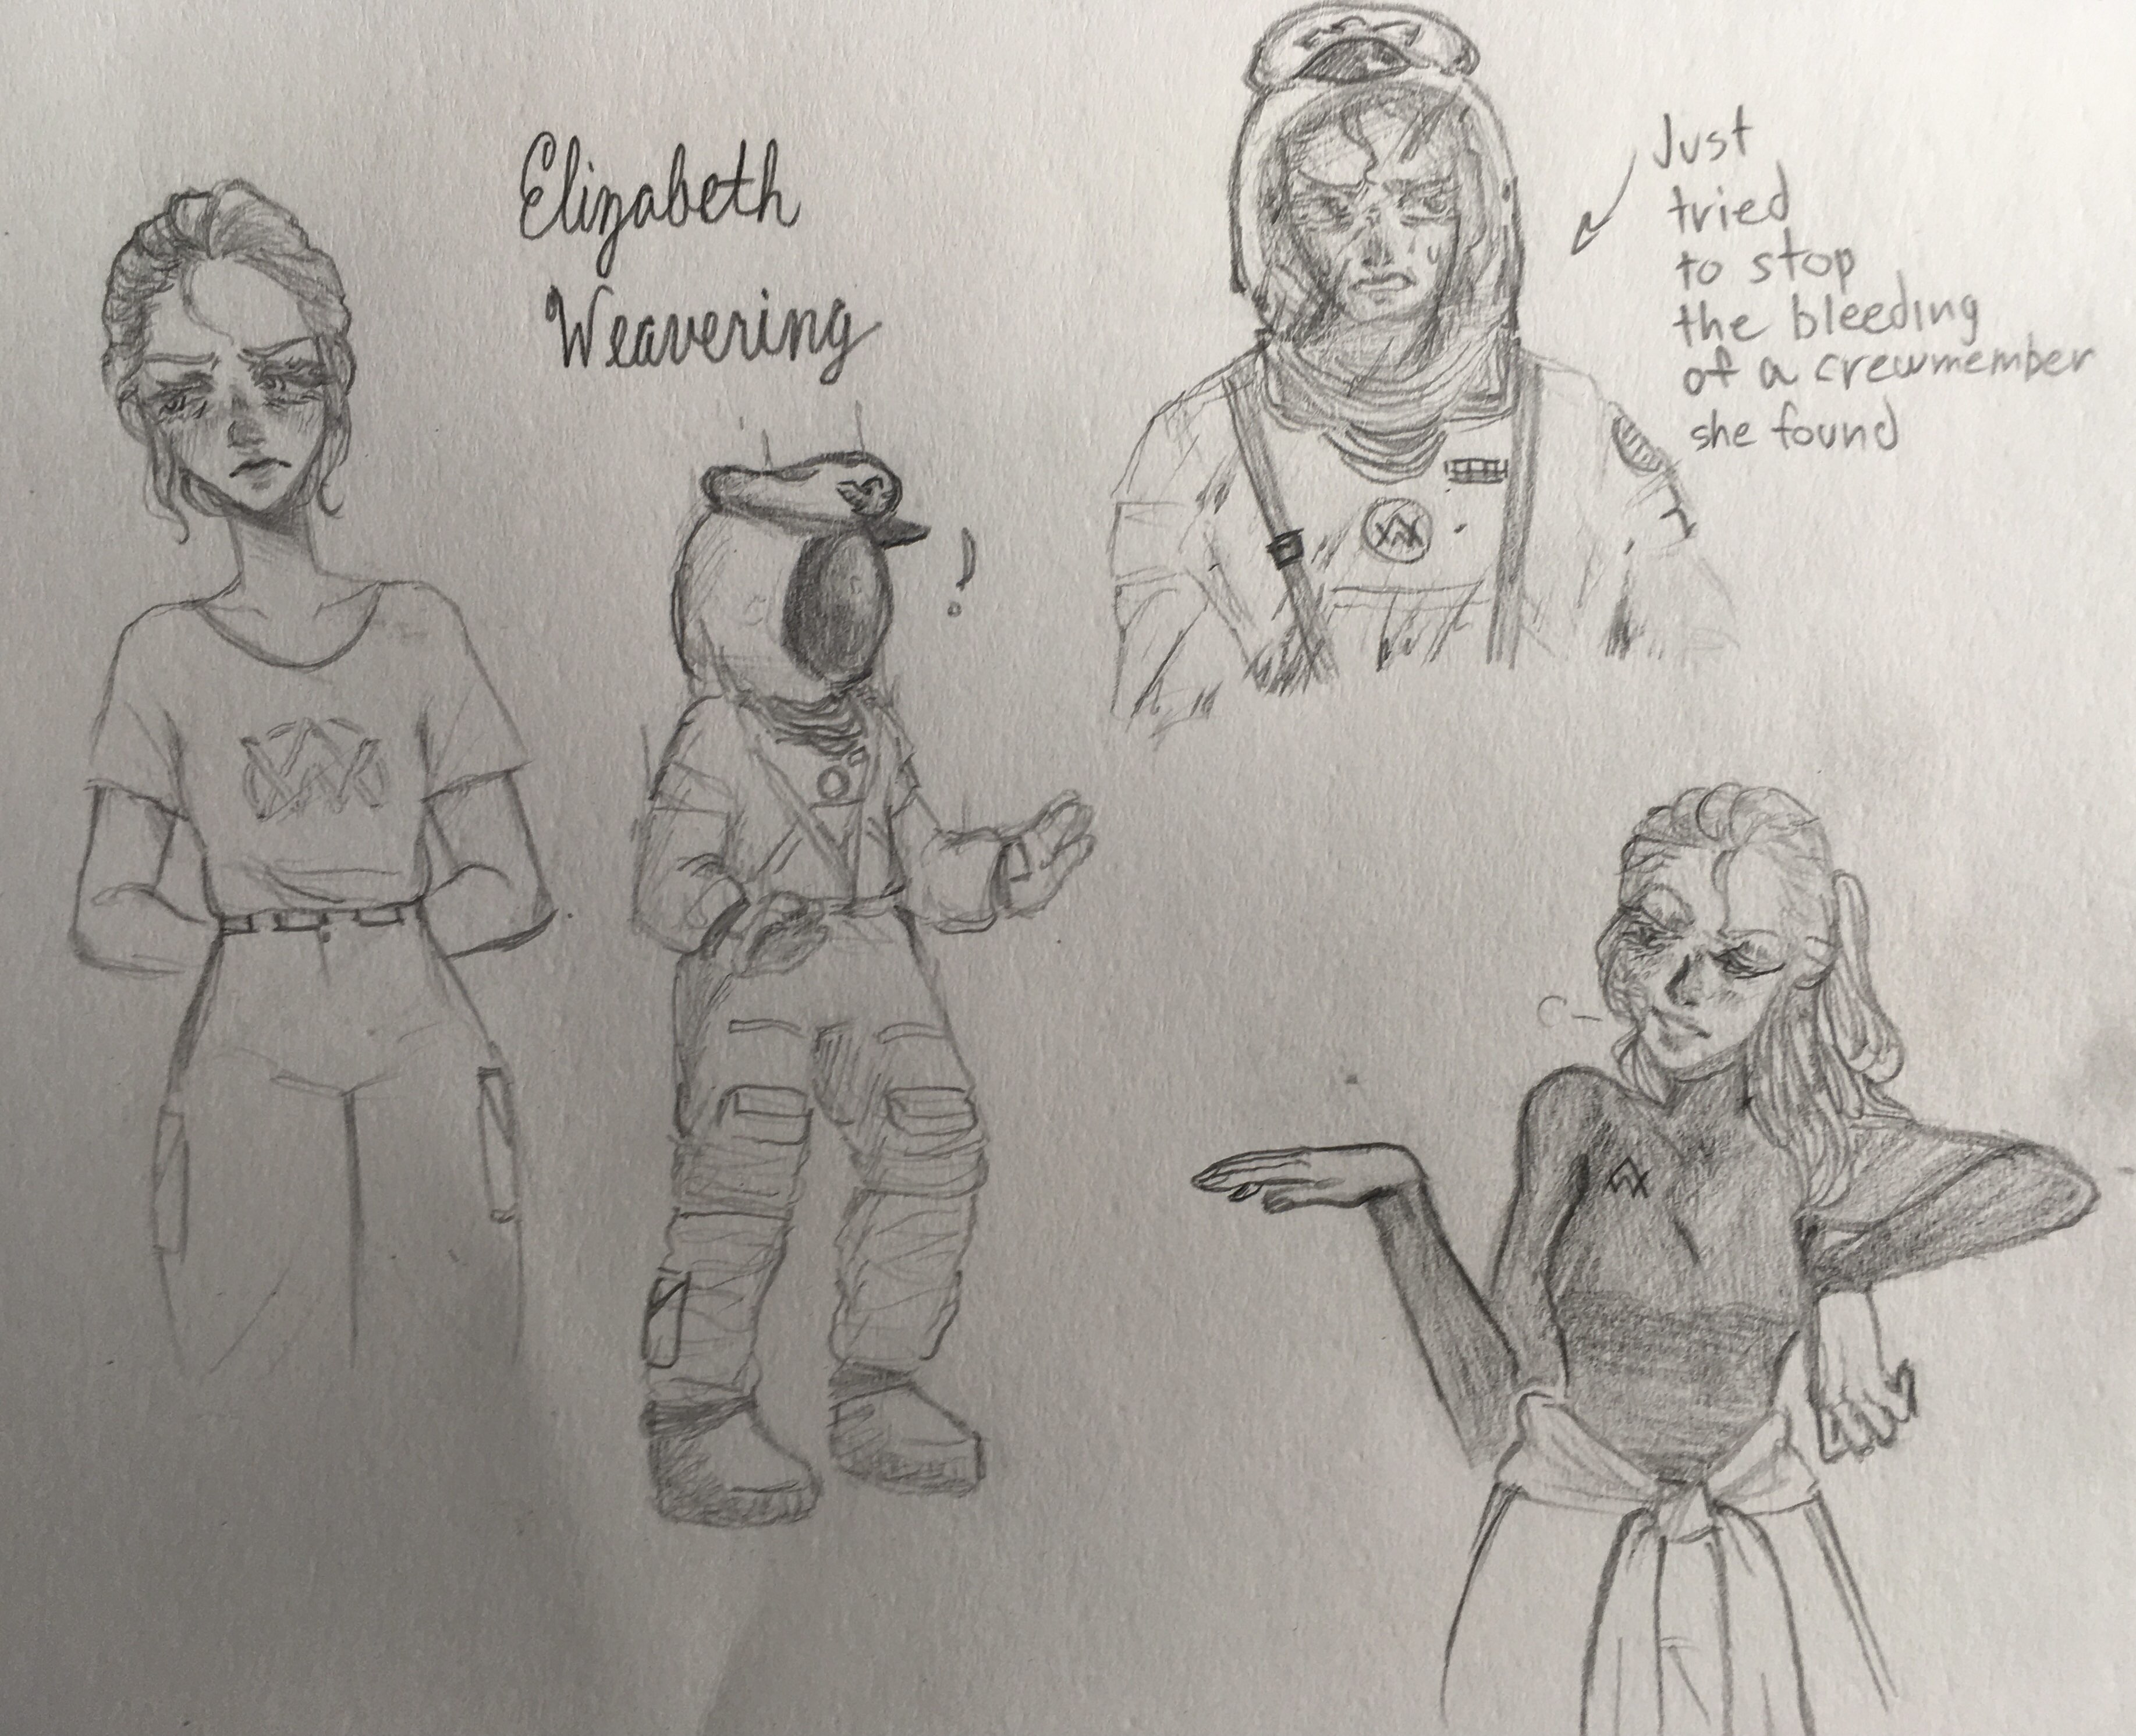 Elizabeth
Weavering
!
Just
tried
to stop
the bleeding
of a crewmember
she found